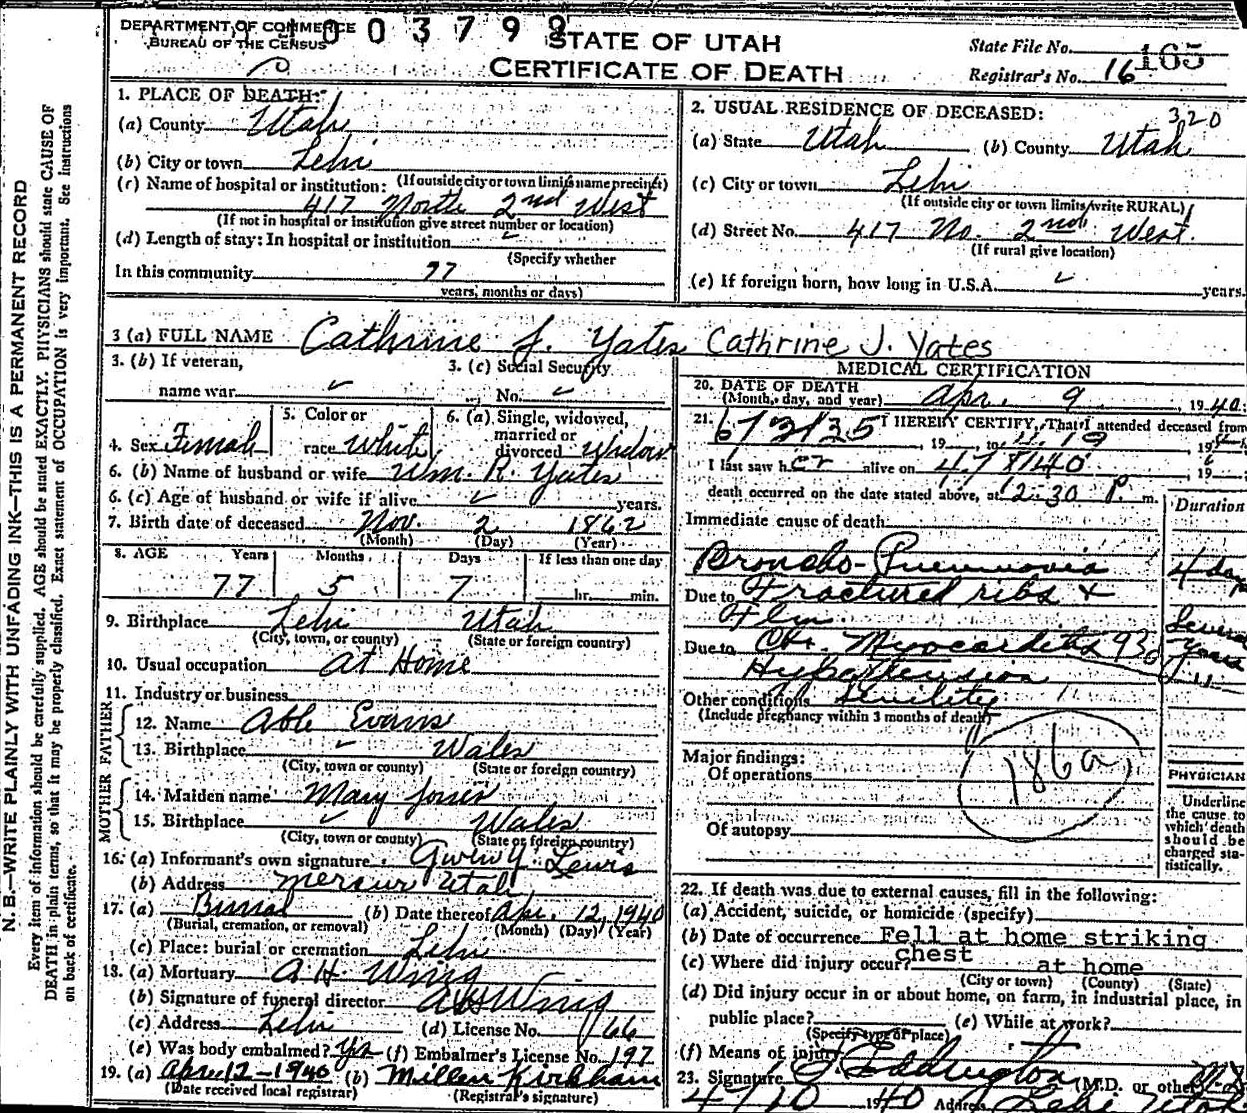 DEPARTMENT OF COMMERCE
BUREAU OF THE CENSUS
003799
STATE OF UTAH
CERTIFICATE OF DEATH
State File No. 165
Registrar's No. 16
N. B.—WRITE PLAINLY WITH UNFADING INK—THIS IS A PERMANENT RECORD
Every item of information should be carefully supplied. AGE should be stated EXACTLY. PHYSICIANS should state CAUSE OF
DEATH in plain terms, so that it may be properly classified. Exact statement of OCCUPATION is very important. See instructions
on back of certificate.
1. PLACE OF DEATH:
(a) County Utah
(b) City or town Lehi
(If outside city or town limits name precinct)
(c) Name of hospital or institution:
417 North 2nd West
(If not in hospital or institution give street number or location)
(d) Length of stay: In hospital or institution ✓
(Specify whether
In this community 77
years, months or days)
2. USUAL RESIDENCE OF DECEASED:
320
(a) State Utah (b) County Utah
(c) City or town Lehi
(If outside city or town limits write RURAL)
(d) Street No. 417 No. 2nd West.
(If rural give location)
(e) If foreign born, how long in U.S.A. ✓ years.
3 (a) FULL NAME Cathrine J. Yates Cathrine J. Yates
3. (b) If veteran,
name war ✓
3. (c) Social Security
No. ✓
4. Sex Female
5. Color or
race White
6. (a) Single, widowed,
married or
divorced Widow
6. (b) Name of husband or wife Wm. R. Yates
6. (c) Age of husband or wife if alive ✓ years.
7. Birth date of deceased Nov. 2 1862
(Month) (Day) (Year)
8. AGE Years Months Days If less than one day
77 5 7 hr. min.
9. Birthplace Lehi Utah
(City, town, or county) (State or foreign country)
10. Usual occupation at Home
11. Industry or business
FATHER
12. Name Able Evans
13. Birthplace ✓ Wales
(City, town or county) (State or foreign country)
MOTHER
14. Maiden name Mary Jones
15. Birthplace ✓ Wales
(City, town or county) (State or foreign country)
16. (a) Informant's own signature Gwen Y. Lewis
(b) Address Mercur Utah
17. (a) Burial (b) Date thereof Apr. 12, 1940
(Burial, cremation, or removal) (Month) (Day) (Year)
(c) Place: burial or cremation Lehi
18. (a) Mortuary A H Wing
(b) Signature of funeral director A H Wing
(c) Address Lehi (d) License No. 166
(e) Was body embalmed? Yes (f) Embalmer's License No. 197
19. (a) Apr 12-1940 (b) Millen Kirkham
(Date received local registrar) (Registrar's signature)
MEDICAL CERTIFICATION
20. DATE OF DEATH
(Month, day, and year) Apr. 9, 1940
21. I HEREBY CERTIFY, That I attended deceased from
19 to 19
I last saw her alive on 19
death occurred on the date stated above, at 12:30 P. m.
Duration
Immediate cause of death
Broncho-Pneumonia 4 days
Due to Fractured ribs +
Flu
Due to Chr. Myocarditis 93 Several years
Hypertension "
Other conditions Senility "
(Include pregnancy within 3 months of death)
Major findings:
Of operations
186a
Of autopsy
PHYSICIAN
Underline
the cause to
which death
should be
charged sta-
tistically.
22. If death was due to external causes, fill in the following:
(a) Accident, suicide, or homicide (specify)
(b) Date of occurrence Fell at home striking
chest
(c) Where did injury occur? at home
(City or town) (County) (State)
(d) Did injury occur in or about home, on farm, in industrial place, in
public place? (e) While at work?
(Specify type of place)
(f) Means of injury
23. Signature Eddington (M.D. or other)
4/10 1940 Address Lehi Utah